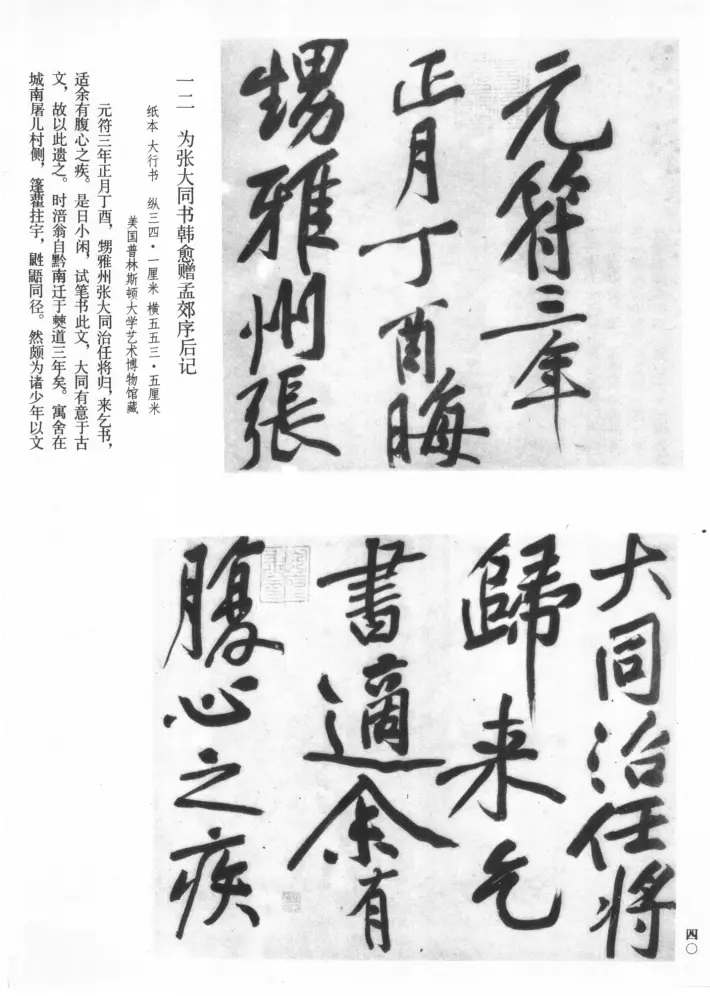 元符三年
正月丁酉晦
甥雅州張
一二 为张大同书韩愈赠孟郊序后记
纸本 大行书 纵三四·一厘米 横五五三·五厘米
美国普林斯顿大学艺术博物馆藏
元符三年正月丁酉，甥雅州张大同治任将归，来乞书，
适余有腹心之疾。是日小闲，试笔书此文，大同有意于古
文，故以此遗之。时涪翁自黔南迁于僰道三年矣。寓舍在
城南屠儿村侧，篷藋拄宇，鼪鼯同径。然颇为诸少年以文
大同治任将
歸来乞
書適余有
腹心之疾
四〇